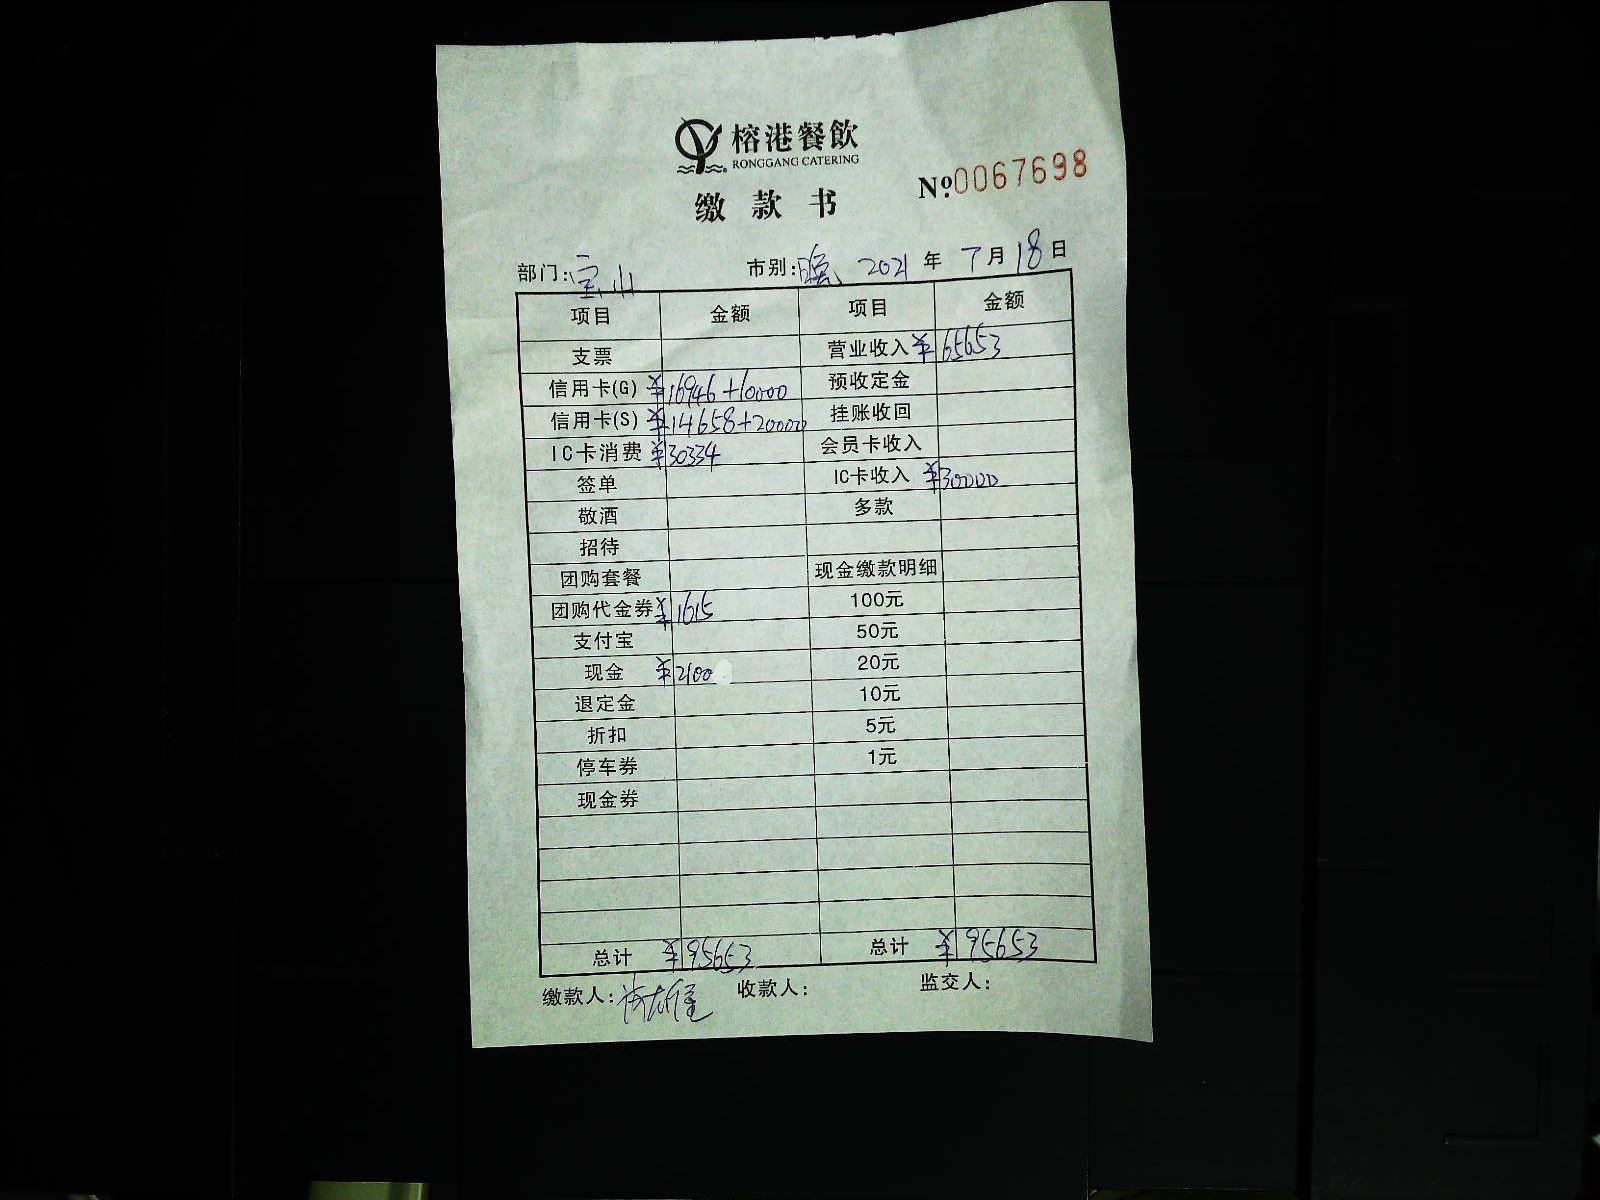 榕港餐飲
RONGGANG CATERING
缴款书
№0067698
部门:宝山 市别:晚 2021年7月18日
项目 金额 项目 金额
支票 营业收入 ¥65653
信用卡(G) ¥16946+10000 预收定金
信用卡(S) ¥14658+20000 挂账收回
IC卡消费 ¥30334 会员卡收入
签单 IC卡收入 ¥30000
敬酒 多款
招待
团购套餐 现金缴款明细
团购代金券 ¥1615 100元
支付宝 50元
现金 ¥2100 20元
退定金 10元
折扣 5元
停车券 1元
现金券
总计 ¥95653 总计 ¥95653
缴款人: 收款人: 监交人: